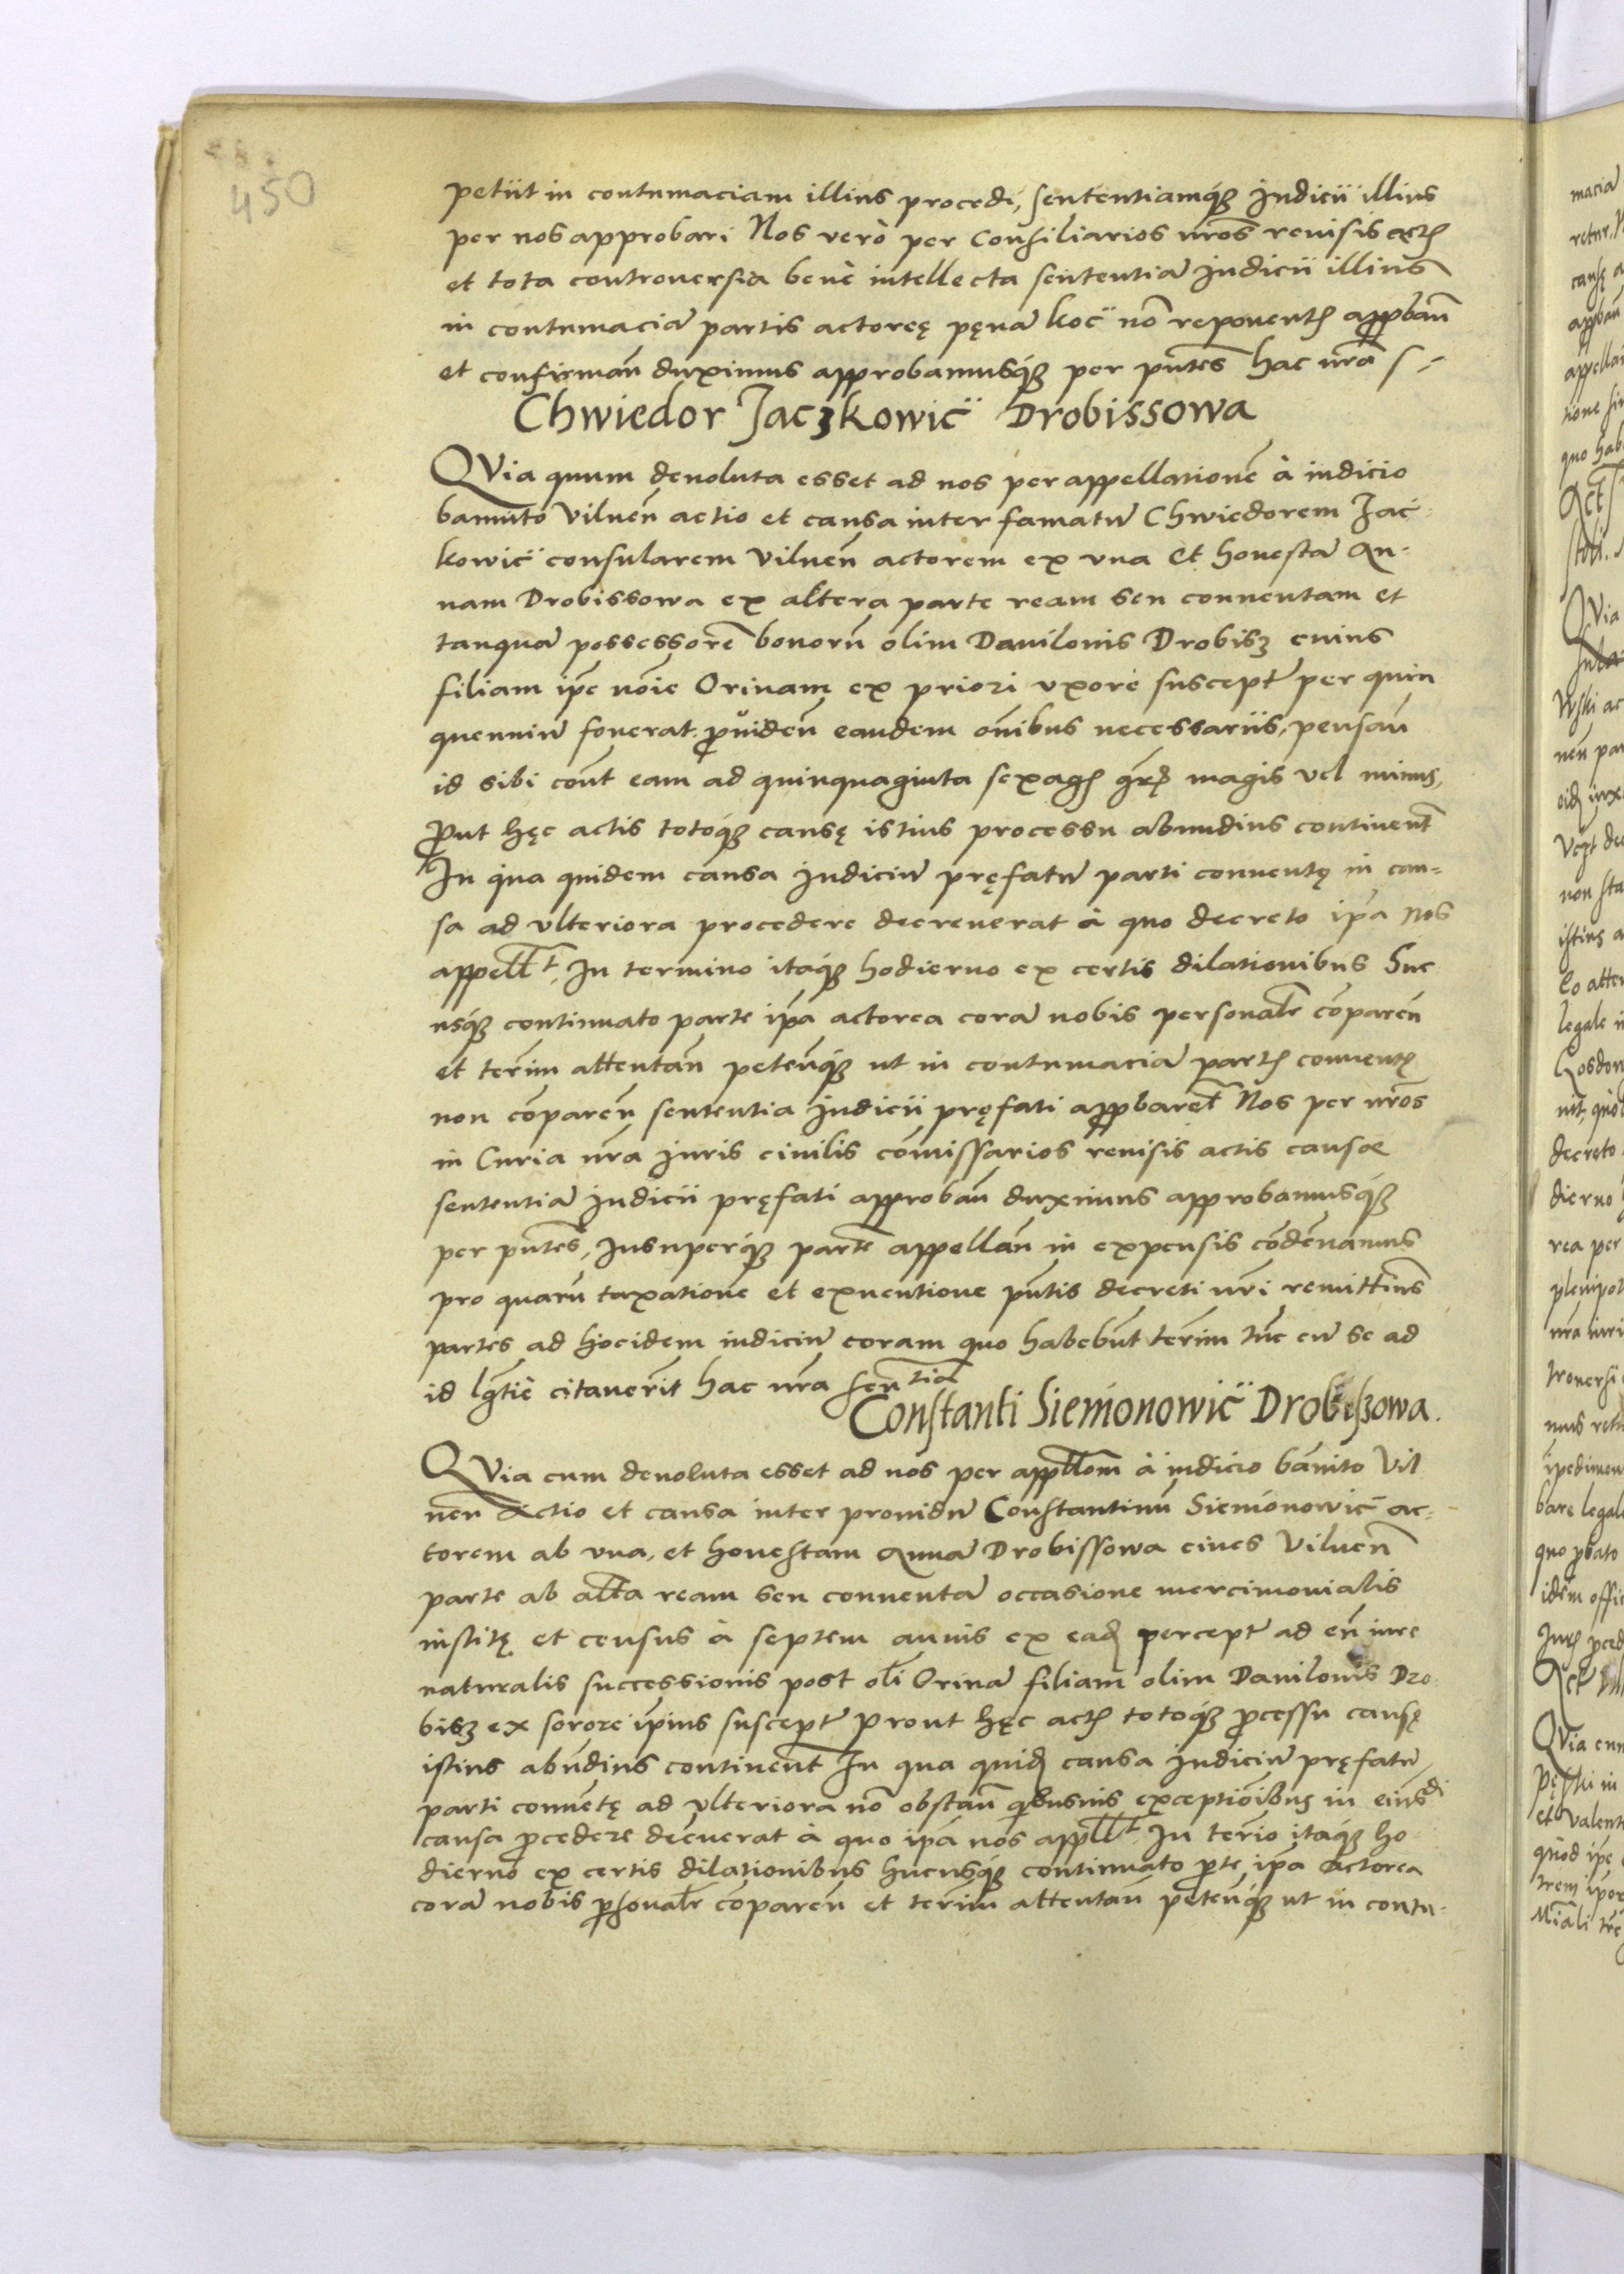 450
petiit in contumaciam illius procedi, sententiamq́ꝫ Iudicii illius
per nos approbari Nos verò per Consiliarios nr̃os reuisis actꝭ
et tota controuersia benè intellecta sententiã Iudicii illius
in contumaciã partis actoreę pęnã koc̈ nõ reponentꝭ approbañ
et confirmañ duximus approbamusq́ꝫ per pñtes hac nr̃a s
Chwiedor Jaczkowic̈ Drobissowa
QVia quum deuoluta esset ad nos per appellationẽ à iudicio
bannito Vilneñ actio et causa inter famatũ Chwiedorem Jac-
kowic̈ consularem Vilneñ actorem ex vna et honestã An-
nam Drobissowa ex altera parte ream seu conuentam et
tanquã possessorẽ bonorũ olim Danilonis Drobisz cuius
filiam ip̃e nõie Orinam ex priori vxore susceptã per quin
quenniũ fouerat ꝓuideñ eandem oñibus necessariis, pensañ
id sibi cont̃ eam ad quinquaginta sexagꝭ gr̃ꝭ magis vel minus,
Prout hęc actis totoq́ꝫ causę istius processu abundius continent̃
In qua quidem causa Iudiciũ pręfatũ parti conuentę in cau-
sa ad vlteriora procedere decreuerat à quo decreto ip̃a nos
appell̃t, In termino itaq́ꝫ hodierno ex certis dilationibus huc
usq́ꝫ continuato parte ip̃a actorea corã nobis personalr̃ cõpareñ
et ter̃im attentañ peteñq́ꝫ ut in contumaciã partꝭ conuentę
non cõpareñ sententia Iudicii pręfati approbaret̃ Nos per nr̃os
in Curia nr̃a Iuris ciuilis cõmissarios reuisis actis causae
sententiã Iudicii pręfati approbañ duximus approbamusq́ꝫ
per pñtes, Insuperq́ꝫ partẽ appellañ in expensis cõdẽnamus
pro quarũ taxatione et exuentione pñtis decreti nr̃i remittim̃s
partes ad hocidem iudiciũ coram quo habebũt ter̃im tũc cũ se ad
id lg̃tiè citauerĩt hac nr̃a sentia
Constanti Siemonowic̈ Drobiszowa.
QVia cum deuoluta esset ad nos per appll̃om à iudicio bãnito Vil
neñ Actio et causa inter prouidũ Constantinũ Siemonowic̈ ac-
torem ab vna, et honestam Annã Drobissowa ciues Vilneñ
parte ab altã ream seu conuentã occasione mercimonialis
institę et census à septem annis ex eadꝭ perceptĩ ad eñ iure
naturalis successionis post oli Orinã filiam olim Danilonis Dro-
bisz ex sorore ip̃ius susceptã prout hęc actꝭ totoq́ꝫ ꝓcessu causę
istius abũdius continent̃ In qua quidꝭ causa Iudiciũ pręfatũ
parti conuẽtę ad vlteriora nõ obstañ q̃busuis exceptiõibus in eiusdi
causa ꝓcedere decr̃uerat à quo ip̃a nos appll̃t In ter̃io itaq́ꝫ ho
dierno ex certis dilationibus hucusq́ꝫ continuato pr̃te ip̃a actorea
corã nobis ꝑsonalr̃ cõpareñ et ter̃im attentañ peteñq́ꝫ ut in contu-